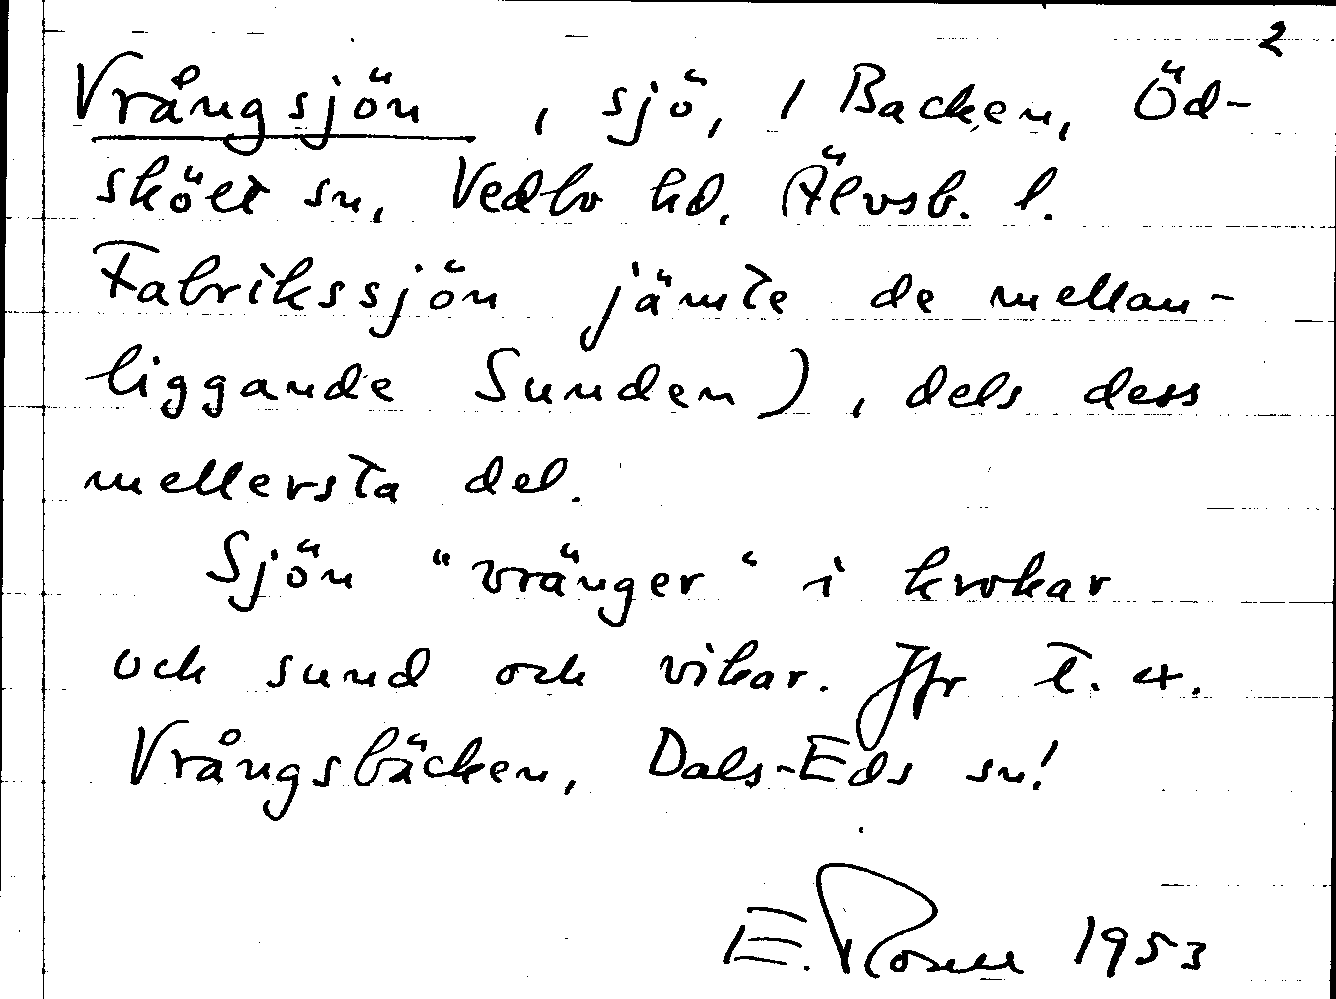 2
Vrångsjön, sjö, 1 Backen, Öd-
skölt sn, Vedbo hd. Älvsb. l.
Fabrikssjön jämte de mellan-
liggande Sunden), dels dess
mellersta del.
Sjön "vränger" i krokar
och sund och vikar. Jfr t. ex.
Vrångsbäcken, Dals-Eds sn!
E. Rosell 1953